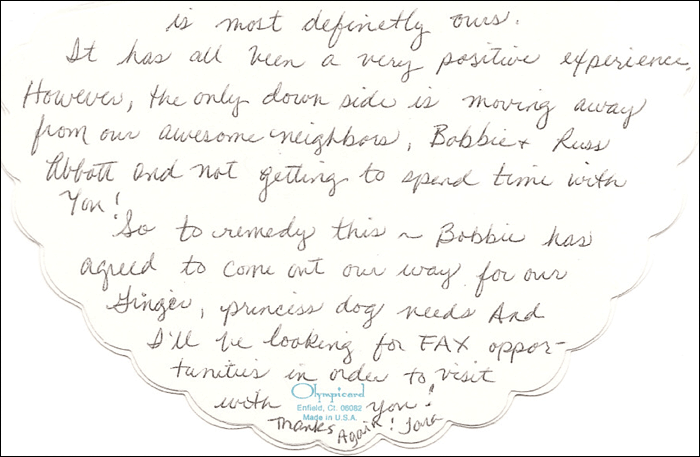 is most definetly ours.
It has all been a very positive experience.
However, the only down side is moving away
from our awesome neighbors, Bobbie + Russ
Abbott and not getting to spend time with
You!
So to remedy this ~ Bobbie has
agreed to come out our way for our
Ginger, princess dog needs And
I'll be looking for FAX oppor-
tunities in order to visit
with you!
Olympicard
Enfield, Ct. 06082
Made in U.S.A.
Thanks Again! Tara